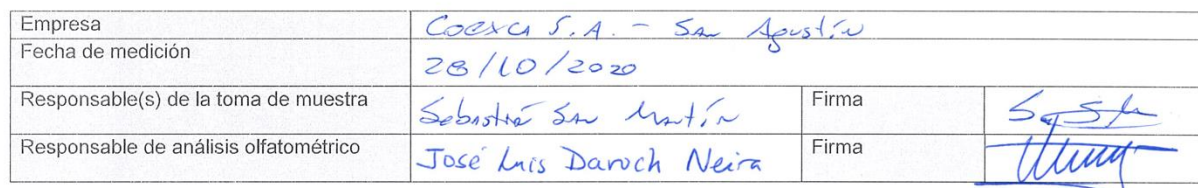 Empresa Coexca S.A. - San Agustín
Fecha de medición 28/10/2020
Responsable(s) de la toma de muestra Sebastiá San Martín Firma
Responsable de análisis olfatométrico José Luis Daroch Neira Firma